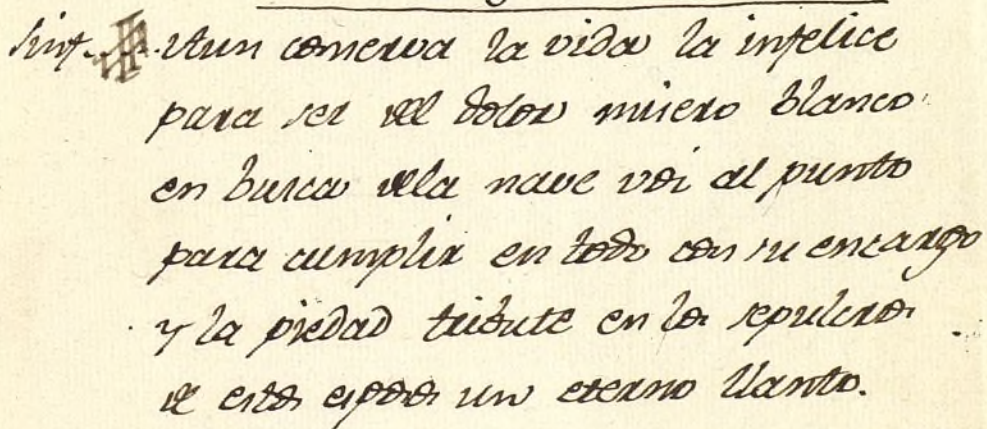 Sint. Aun conserva la vida la infelice
para ser del dolor misero blanco
en busca dela nave voi al punto
para cumplir en todo con su encargo
y la piedad tribute en los sepulcros
de estos esposos un eterno llanto.